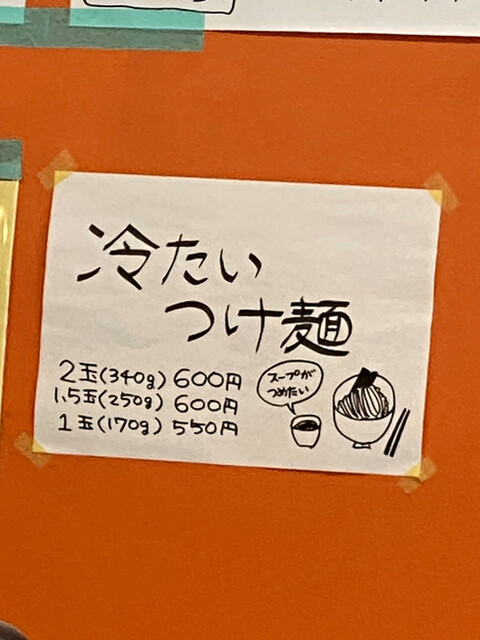 冷たい
つけ麺
2玉(340g) 600円
1.5玉(250g) 600円
1玉(170g) 550円
スープが
つめたい